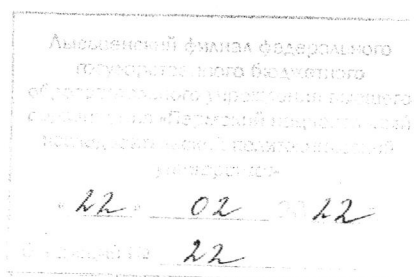 Лысьвенский филиал федерального
государственного бюджетного
образовательного учреждения высшего
образования «Пермский национальный
исследовательский политехнический
университет»
« 22 » 02 20 22
22